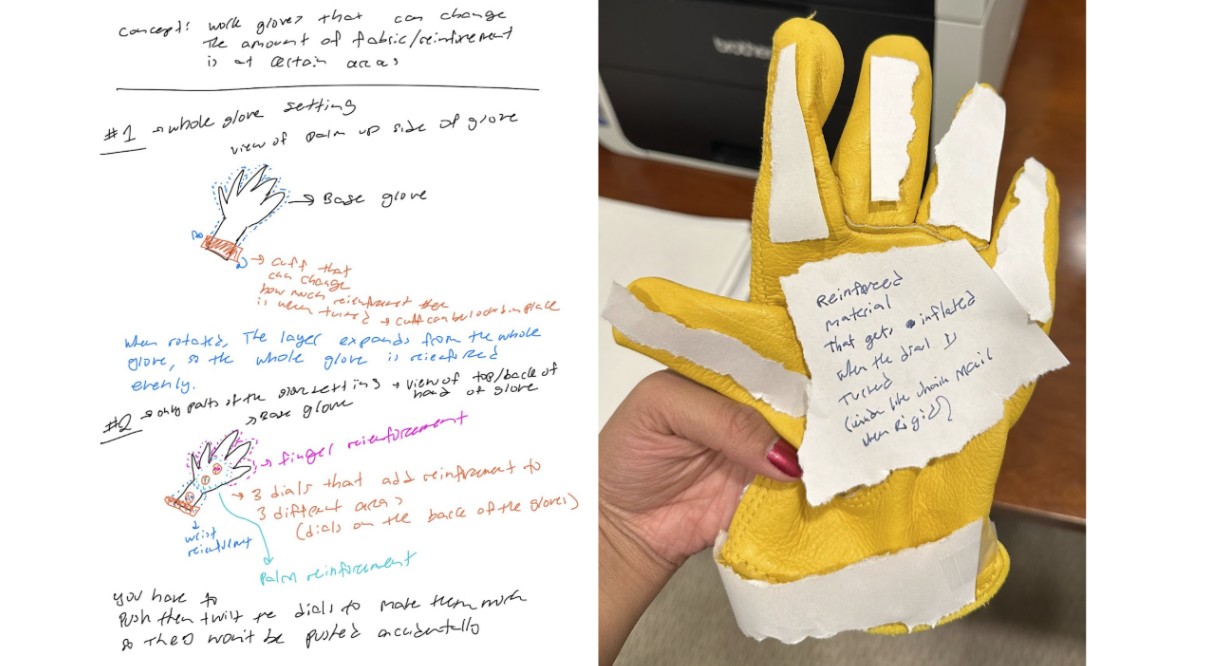 concept: work gloves that can change
the amount of fabric/reinforcement
is at certain areas
#1 → whole glove setting
view of palm up side of glove
→ Base glove
→ cuff that
can change
how much reinforcement
is when turned → cuff can be locked in place
when rotated, The layer expands from the whole
glove, so the whole glove is reinforced
evenly.
#2 → only parts of the glove setting → view of top/back of
hand of glove
→ Base glove
→ finger reinforcement
→ 3 dials that add reinforcement to
3 different areas
(dials on the back of the gloves)
wrist
reinforcement
palm reinforcement
you have to
push then twist the dials to make them work
so they won't be accidentally
brother
Reinforced
material
That gets inflated
when the dial is
turned
(inside like chain mail
when Rigid)